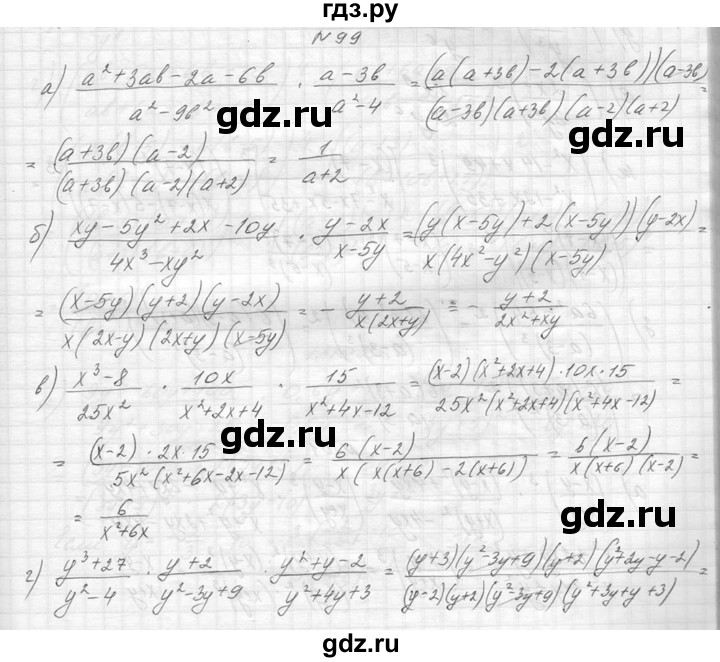 гдз.ру
N 99
а) (a² + 3ab - 2a - 6b)/(a² - 9b²) · (a - 3b)/(a² - 4) = (a(a + 3b) - 2(a + 3b))(a - 3b)/((a - 3b)(a + 3b)(a - 2)(a + 2)) =
gdz.ru gdz.ru
= (a + 3b)(a - 2)/((a + 3b)(a - 2)(a + 2)) = 1/(a + 2)
б) (xy - 5y² + 2x - 10y)/(4x³ - xy²) · (y - 2x)/(x - 5y) = (y(x - 5y) + 2(x - 5y))(y - 2x)/(x(4x² - y²)(x - 5y)) =
= (x - 5y)(y + 2)(y - 2x)/(x(2x - y)(2x + y)(x - 5y)) = - (y + 2)/(x(2x + y)) = - (y + 2)/(2x² + xy)
gdz.ru
в) (x³ - 8)/(25x²) · 10x/(x² + 2x + 4) · 15/(x² + 4x - 12) = (x - 2)(x² + 2x + 4) · 10x · 15/(25x²(x² + 2x + 4)(x² + 4x - 12)) =
gdz.ru
= (x - 2) · 2x · 15/(5x²(x² + 6x - 2x - 12)) = 6(x - 2)/(x(x(x + 6) - 2(x + 6))) = 6(x - 2)/(x(x + 6)(x - 2)) =
= 6/(x² + 6x)
gdz.ru
г) (y³ + 27)/(y² - 4) · (y + 2)/(y² - 3y + 9) · (y² + y - 2)/(y² + 4y + 3) = (y + 3)(y² - 3y + 9)(y + 2)(y² + 2y - y - 2)/((y - 2)(y + 2)(y² - 3y + 9)(y² + 3y + y + 3)) =
gdz.ru gdz.ru